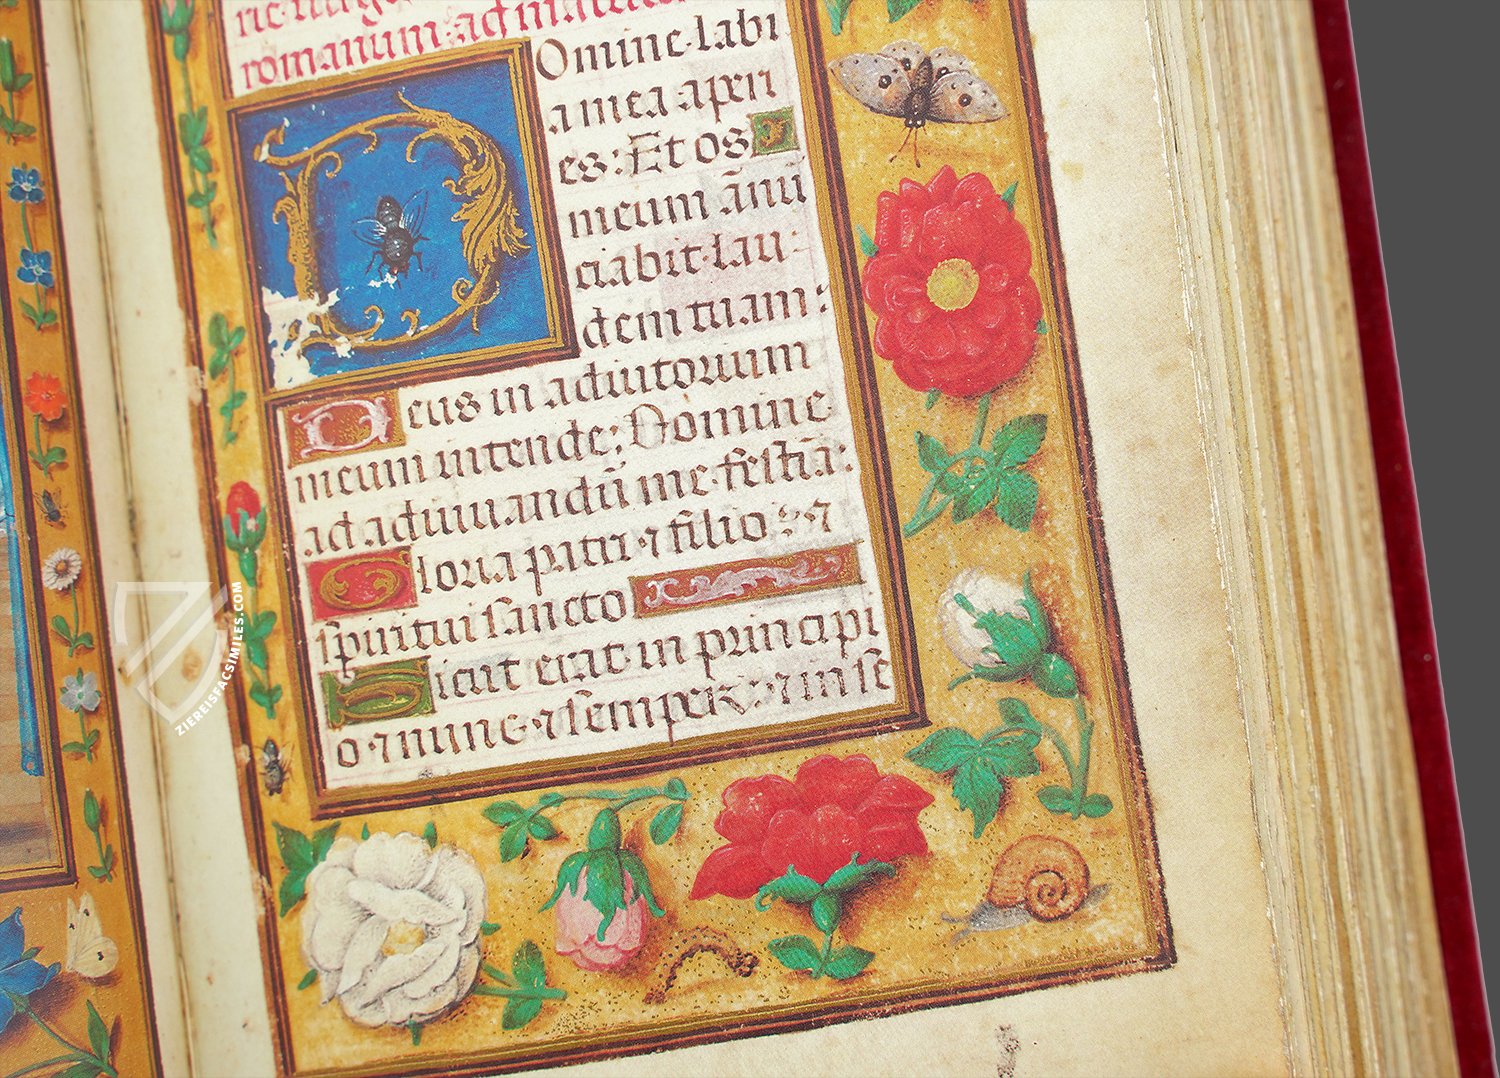 romanum: ad matutinas
Domine labi
a mea aperi
es: Et os
meum ānū
ciabit lau:
dem tuam:
Deus in adiutorium
meum intende: Domine
ad adiuuandū me festia:
Gloria patri ⁊ filio: ⁊
spiritui sancto
Sicut erat in principi
o ⁊ nunc ⁊ semper: ⁊ in se
ZIEREISFACSIMILES.COM